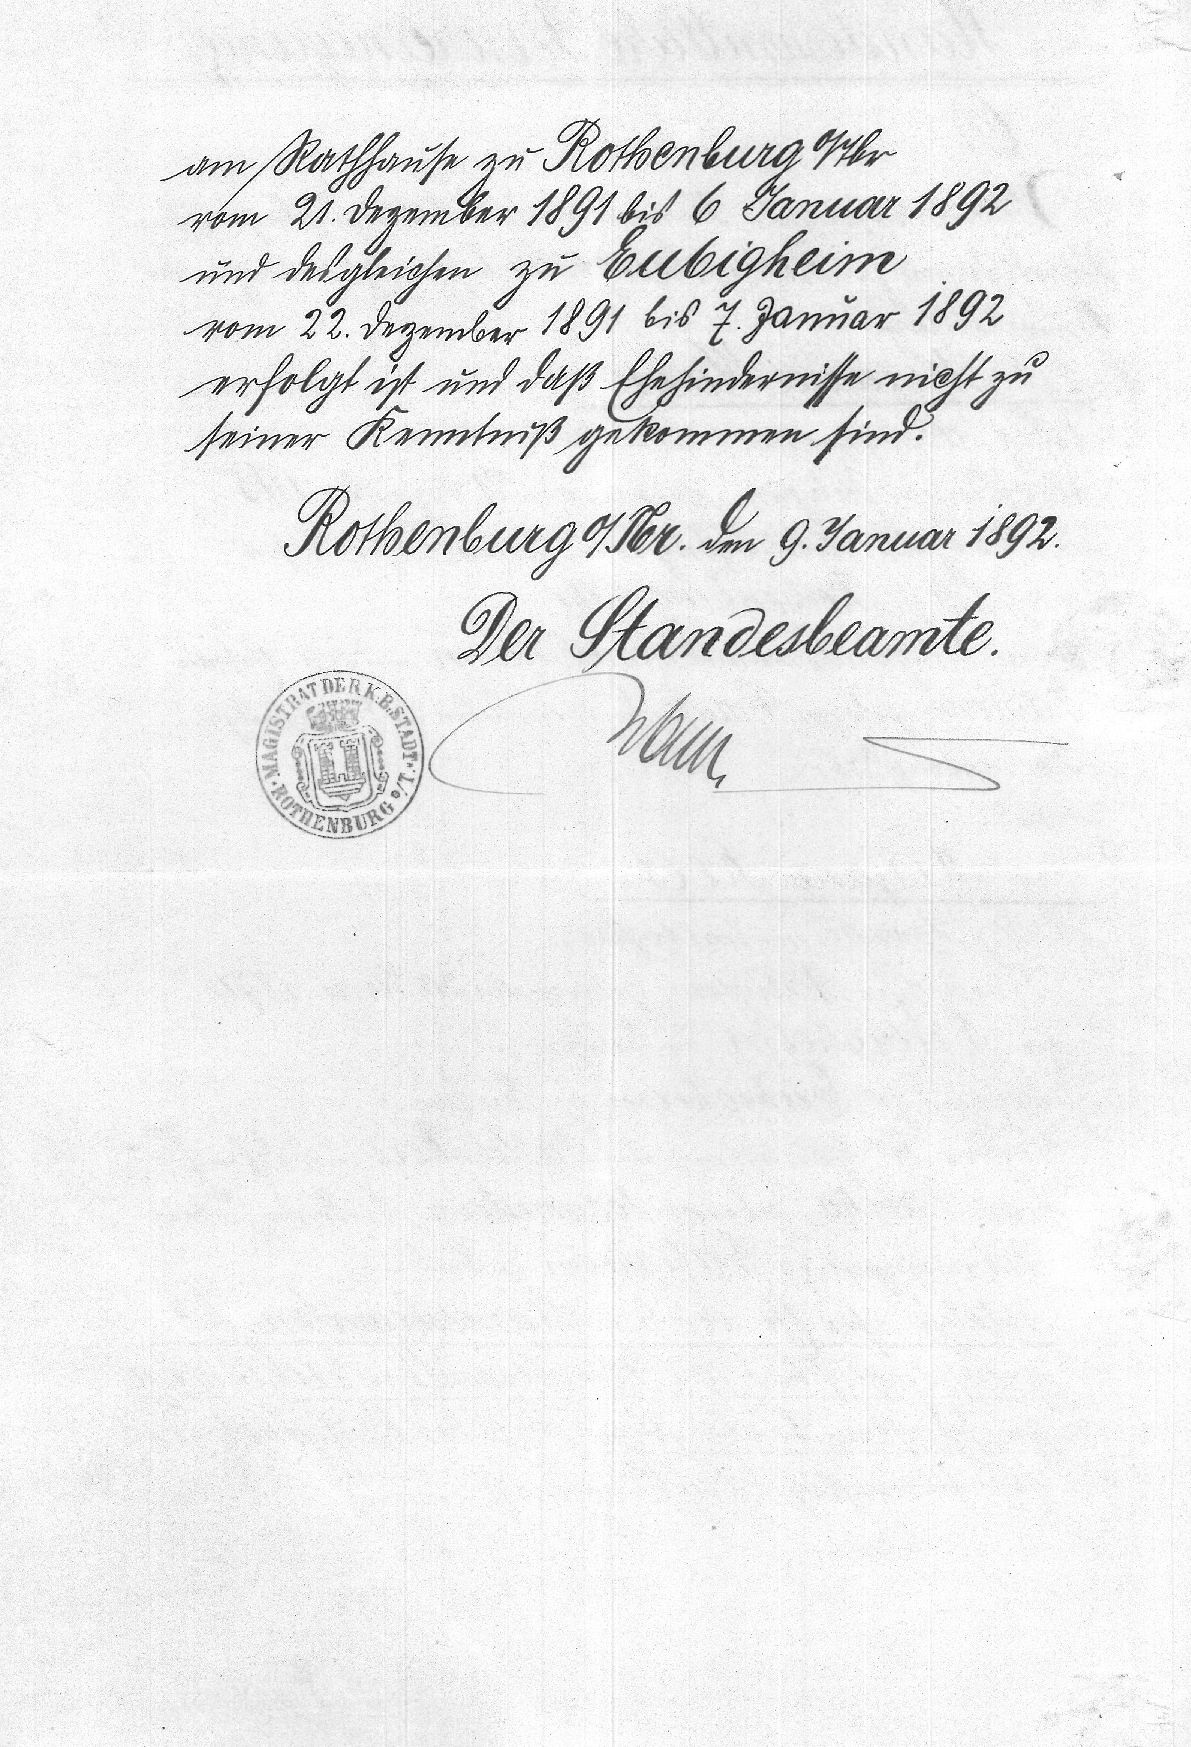 am Rathhause zu Rothenburg o/Tbr
vom 21. Dezember 1891 bis 6 Januar 1892
und desgleichen zu Eubigheim
vom 22. Dezember 1891 bis 7. Januar 1892
erfolgt ist und daß Ehehindernisse nicht zu
seiner Kenntniß gekommen sind.
Rothenburg o/Tbr. den 9. Januar 1892.
Der Standesbeamte.
MAGISTRAT DER K.B. STADT
ROTHENBURG o/T.